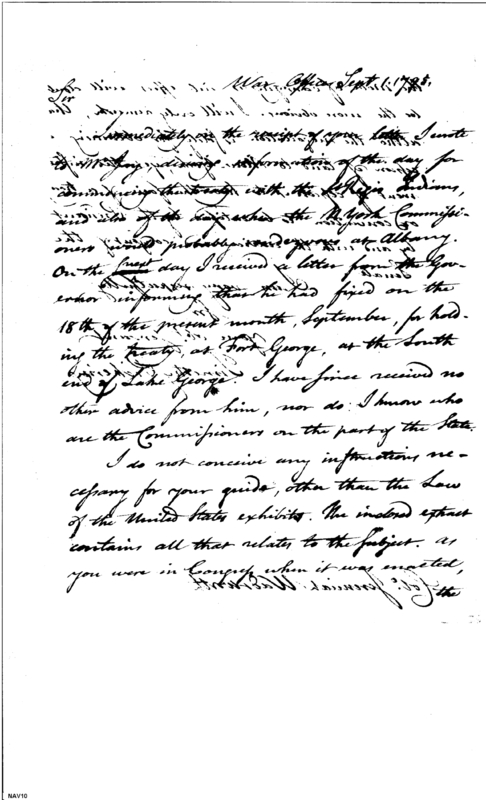 War Office Sept. 1. 1795.
Sir
Immediately on the receipt of your letter I wrote
to Mr. Jay desiring information of the day for
commencing the treaty with the St. Regis Indians,
and also of the day when the N York Commissi-
oners would probably rendezvous at Albany.
On the next day I received a letter from the Gov-
ernor informing that he had fixed on the
18th of the present month, September, for hold-
ing the treaty, at Fort George, at the South
end of Lake George. I have since received no
other advice from him, nor do I know who
are the Commissioners on the part of the State.
I do not conceive any instructions ne-
cessary for your guide, other than the Law
of the United States exhibits. The inclosed extract
contains all that relates to the subject. As
you were in Congress when it was enacted,
the
Colo. Jeremiah Wadsworth
NAV10